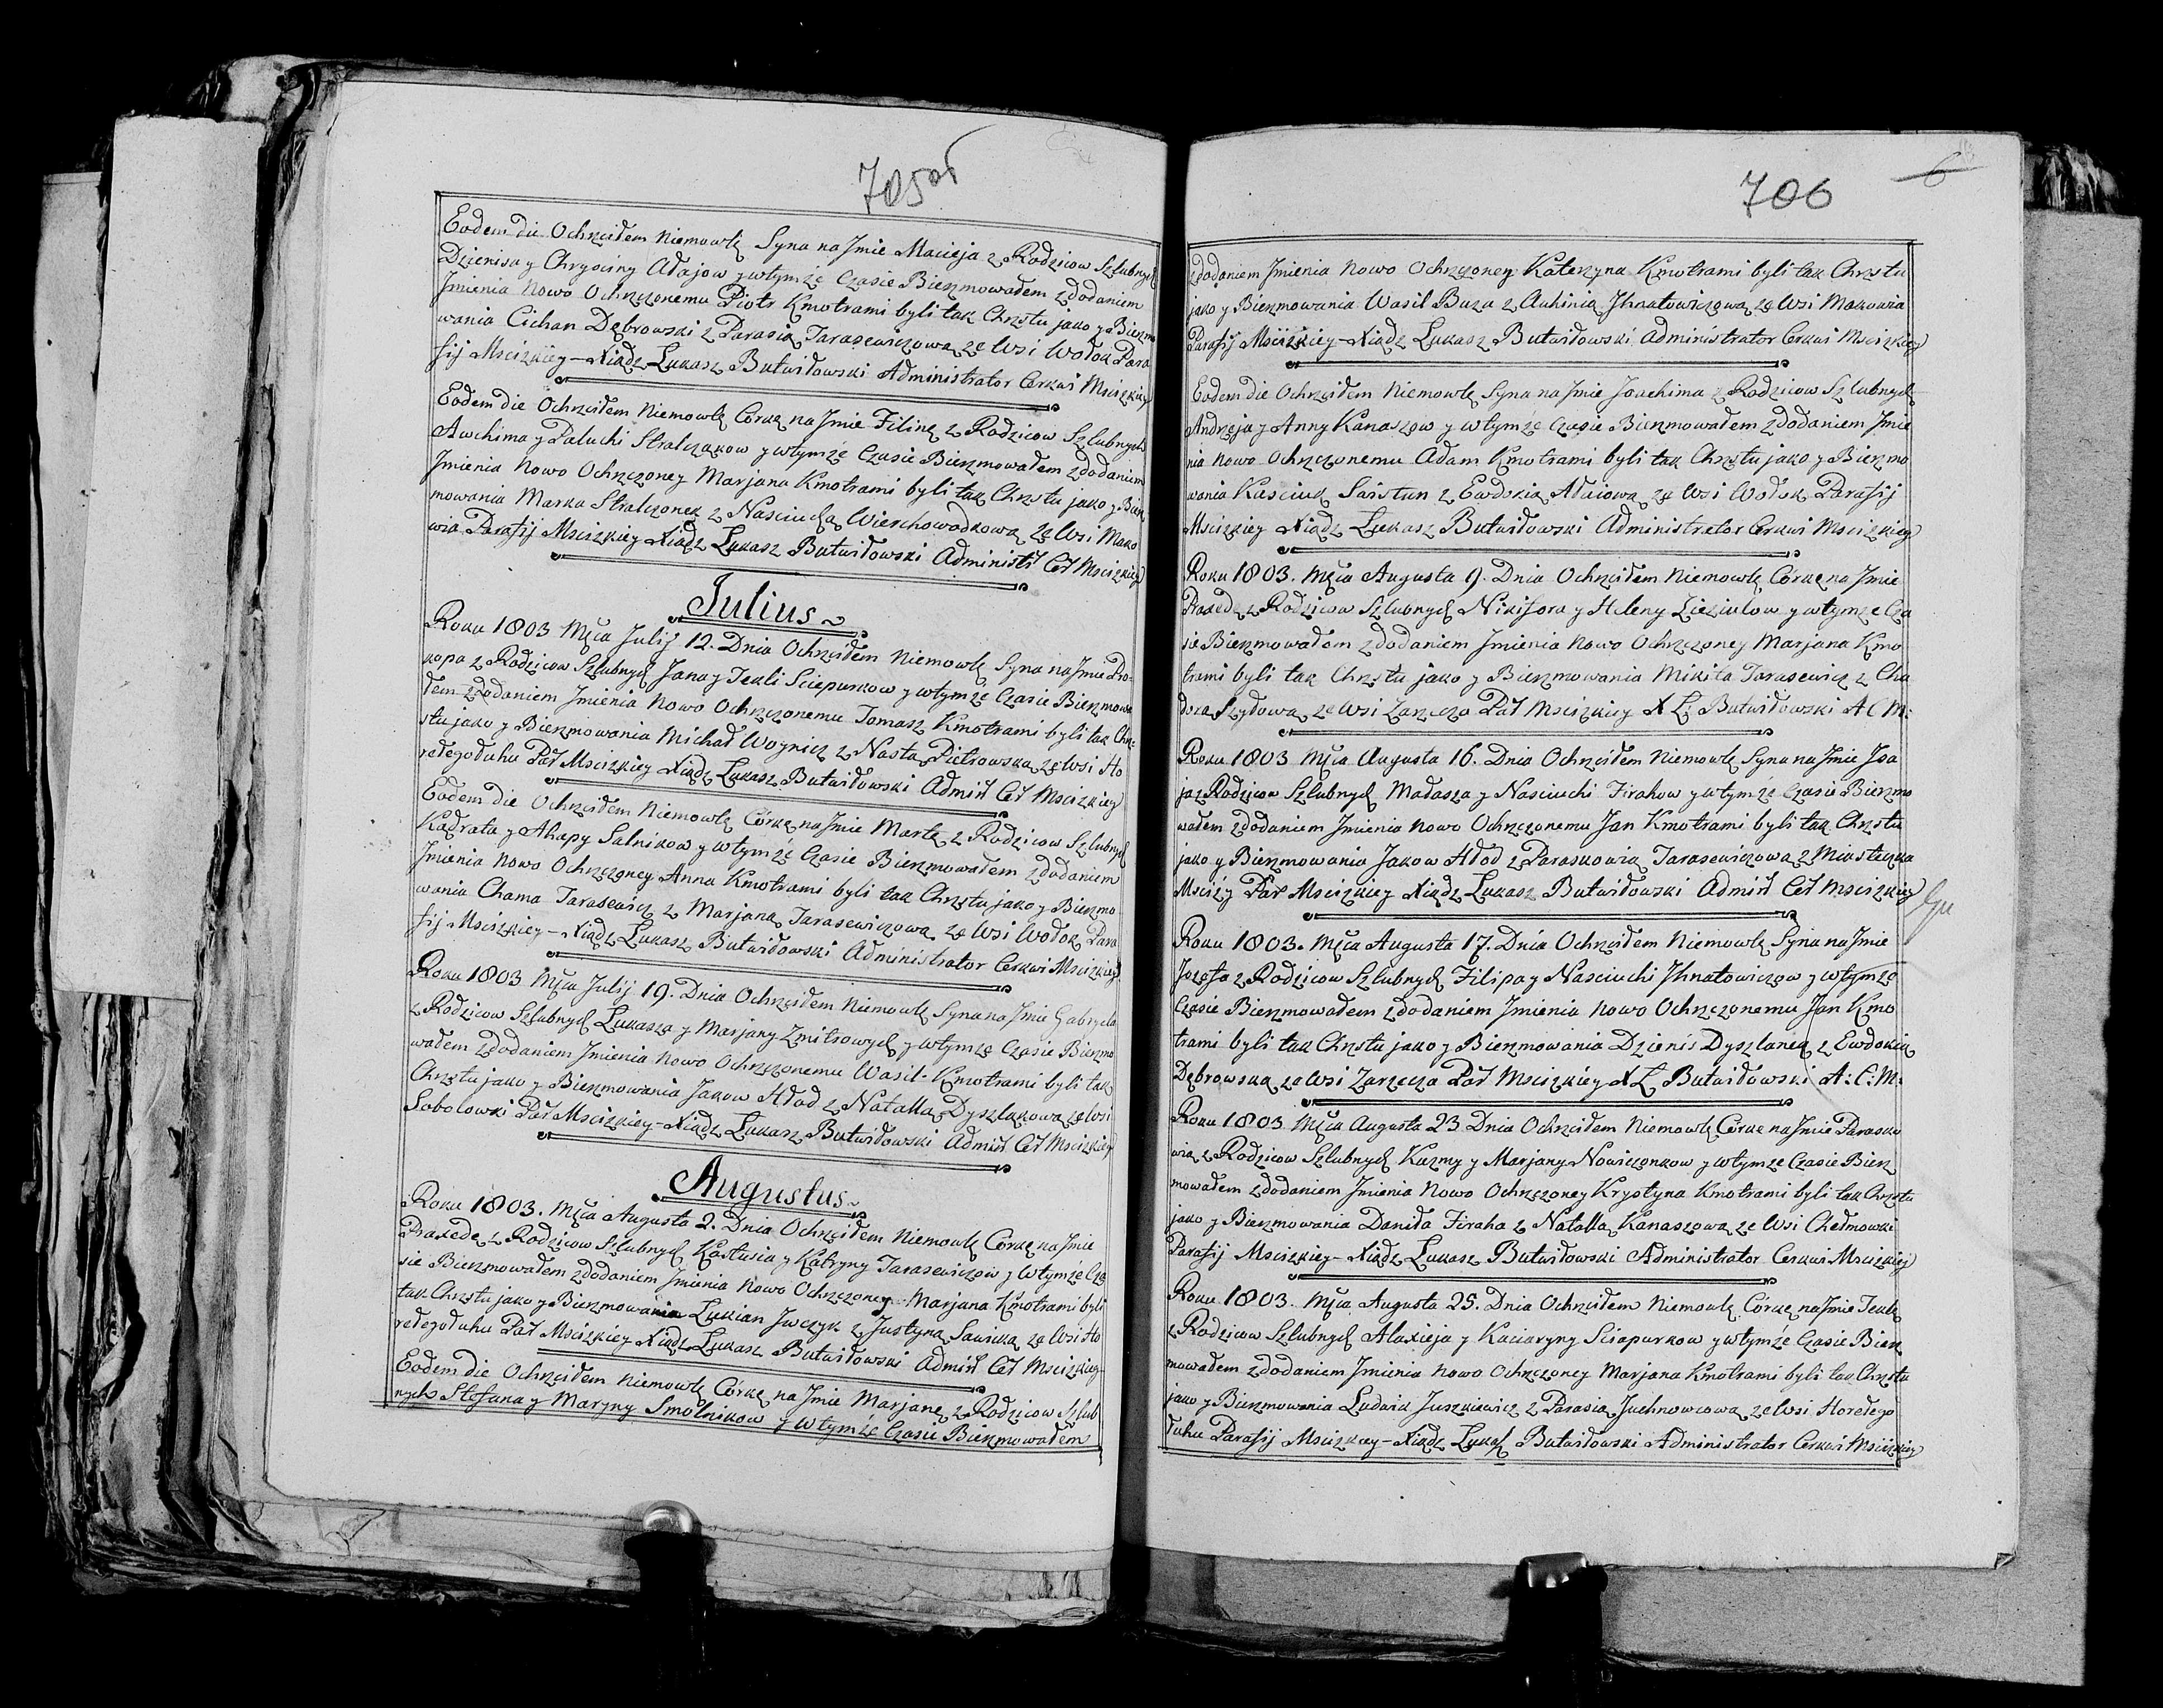 705 об
Eodem die Ochrzciłem Niemowlę Syna na Jmie Macieja z Rodzicow Szlubnych
Dzienisa y Chrysciny Adajow y wtymże Czasie Bierzmowałem z dodaniem
Jmienia Nowo Ochrzczonemu Piotr Kmotrami byli tak Chrztu jako y Bierzmo
wania Cichan Dębrowski z Parasią Tarasewiczową ze Wsi Wołok Para
fij Mscizkiey – Xiądz Łukasz Butwiłowski Administrator Cerkwi Mscizkiey
Eodem die Ochrzciłem Niemowlę Córkę na Jmie Filinę z Rodzicow Szlubnych
Awchima y Paluchi Stralczakow y wtymże Czasie Bierzmowałem z dodaniem
Jmienia Nowo Ochrzczoney Marjana Kmotrami byli tak Chrztu jako y Bierz
mowania Marka Stralczonek z Nasciuchą Wierchowodkową ze Wsi Mako
wia Parafij Mscizkiey Xiądz Łukasz Butwiłowski Administr Cer Mscizkiey
Julius
Roku 1803 Mca Julij 12. Dnia Ochrzciłem Niemowlę Syna na Jmie Pro-
kopa z Rodzicow Szlubnych Jana y Tekli Sciepurkow y wtymże Czasie Bierzmowa
łem z dodaniem Jmienia Nowo Ochrzczonemu Tomasz Kmotrami byli tak Chrz-
stu jako y Bierzmowania Michał Woynicz z Nastą Pietrowską ze Wsi Ho
rełegołuhu Par Mscizkiey Xiądz Łukasz Butwiłowski Admin Cer Mscizkiey
Eodem die Ochrzciłem Niemowlę Córkę na Jmie Martę z Rodzicow Szlubnych
Kadrata y Ahapy Salnikow y wtymże Czasie Bierzmowałem z dodaniem
Jmienia Nowo Ochrzczoney Anna Kmotrami byli tak Chrztu jako y Bierzmo
wania Chama Tarasewicz z Marjaną Tarasewiczową ze Wsi Wołok Para
fij Mscizkiey – Xiądz Łukasz Butwiłowski Administrator Cerkwi Mscizkiey
Roku 1803 Mca Julij 19. Dnia Ochrzciłem Niemowlę Syna na Jmie Gabryela
z Rodzicow Szlubnych Łukasza y Marjany Zmitrowych y wtymże Czasie Bierzmo
wałem z dodaniem Jmienia Nowo Ochrzczonemu Wasil – Kmotrami byli tak
Chrztu jako y Bierzmowania Jakow Hłod z Natallą Dyszlukową ze Wsi
Sobolowki Par Mscizkiey – Xiądz Łukasz Butwiłowski Admin Cer Mscizkiey
Augustus
Roku 1803. Mca Augusta 2. Dnia Ochrzciłem Niemowlę Córkę na Jmie
Praxedę z Rodzicow Szlubnych Kostusia y Katryny Tarasewiczow y wtymże Cza
sie Bierzmowałem z dodaniem Jmienia Nowo Ochrzczoney Marjana Kmotrami byli
tak Chrztu jako y Bierzmowania Lukian Jwczyk z Justyną Sawicką ze Wsi Ho
rełegołuhu Par Mscizkiey Xiądz Łukasz Butwiłowski Admin Cer Mscizkiey
Eodem die Ochrzciłem Niemowlę Córkę na Jmie Marjanę z Rodzicow Szlub
nych Stefana y Maryny Smolnikow y wtymże Czasie Bierzmowałem
706
6
z dodaniem Jmienia Nowo Ochrzczoney Katerzyna Kmotrami byli tak Chrztu
jako y Bierzmowania Wasil Buza z Auhinią Jhnatowiczową ze Wsi Makowia
Parafij Mscizkiey – Xiądz Łukasz Butwiłowski Administrator Cerkwi Mscizkiey
Eodem die Ochrzciłem Niemowlę Syna na Jmie Joachima z Rodzicow Szlubnych
Andreja y Anny Kanaszow y wtymże Czasie Bierzmowałem z dodaniem Jmie
nia Nowo Ochrzczonemu Adam Kmotrami byli tak Chrztu jako y Bierzmo
wania Kasciuk Swistun z Ewdokią Adaiową ze Wsi Wołok Parafij
Mscizkiey Xiądz Łukasz Butwiłowski Administrator Cerkwi Mscizkiey
Roku 1803. Mca Augusta 9. Dnia Ochrzciłem Niemowlę Córkę na Jmie
Praxedę z Rodzicow Szlubnych Nikifora y Heleny Zieziulow y wtymże Cza
sie Bierzmowałem z dodaniem Jmienia Nowo Ochrzczoney Marjana Kmo
trami byli tak Chrztu jako y Bierzmowania Mikita Tarasewicz z Cha
dorą Szydową ze Wsi Zarzecza Par Mscizkiey X Ł: Butwiłowski A C M:
Roku 1803 Mca Augusta 16. Dnia Ochrzciłem Niemowlę Syna na Jmie Jsa
ja z Rodzicow Szlubnych Małasza y Nasciuchi Firahow y wtymże Czasie Bierzmo
wałem z dodaniem Jmienia Nowo Ochrzczonemu Jan Kmotrami byli tak Chrztu
jako y Bierzmowania Jakow Hłod z Paraskowią Tarasewiczową z Miasteczka
Msciży Par Mscizkiey Xiądz Łukasz Butwiłowski Admin Cer Mscizkiey
Roku 1803. Mca Augusta 17. Dnia Ochrzciłem Niemowlę Syna na Jmie
Jozefa z Rodzicow Szlubnych Filipa y Nasciuchi Jhnatowiczow y wtymże
Czasie Bierzmowałem z dodaniem Jmienia Nowo Ochrzczonemu Jan Kmo
trami byli tak Chrztu jako y Bierzmowania Dzienis Dyszlanek z Ewdokią
Dębrowską ze Wsi Zarzecza Par Mscizkiey X Ł Butwiłowski A: C: M:
Roku 1803 Mca Augusta 23 Dnia Ochrzciłem Niemowlę Córkę na Jmie Parasko
wią z Rodzicow Szlubnych Kuzmy y Marjany Nowiczonkow y wtymże Czasie Bierz
mowałem z dodaniem Jmienia Nowo Ochrzczoney Krystyna Kmotrami byli tak Chrztu
jako y Bierzmowania Daniła Firaha z Natallą Kanaszową ze Wsi Chełmowki
Parafij Mscizkiey – Xiądz Łukasz Butwiłowski Administrator Cerkwi Mscizkiey
Roku 1803. Mca Augusta 25. Dnia Ochrzciłem Niemowlę Córkę na Jmie Teklę
z Rodzicow Szlubnych Alaxieja y Kaciaryny Sciapurkow y wtymże Czasie Bierz
mowałem z dodaniem Jmienia Nowo Ochrzczoney Marjana Kmotrami byli tak Chrztu
jako y Bierzmowania Ludwik Juszkiewicz z Parasią Juchnowcową ze Wsi Horełego
łuhu Parafij Mscizkiey – Xiądz Łukasz Butwiłowski Administrator Cerkwi Mscizkiey